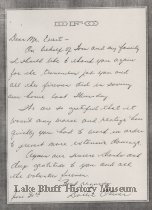 Dear Mr. Evart -
On behalf of Don and my family
I should like to thank you again
for the tremendous job you and
all the firemen did in saving
our home last Monday.
We are so grateful that it
would any worse and realize how
quickly you had to work in order
to prevent more extensive damage.
Again our sincere thanks and
deep gratitude to you and all
the volunteer firemen.
Lake Bluff History Museum